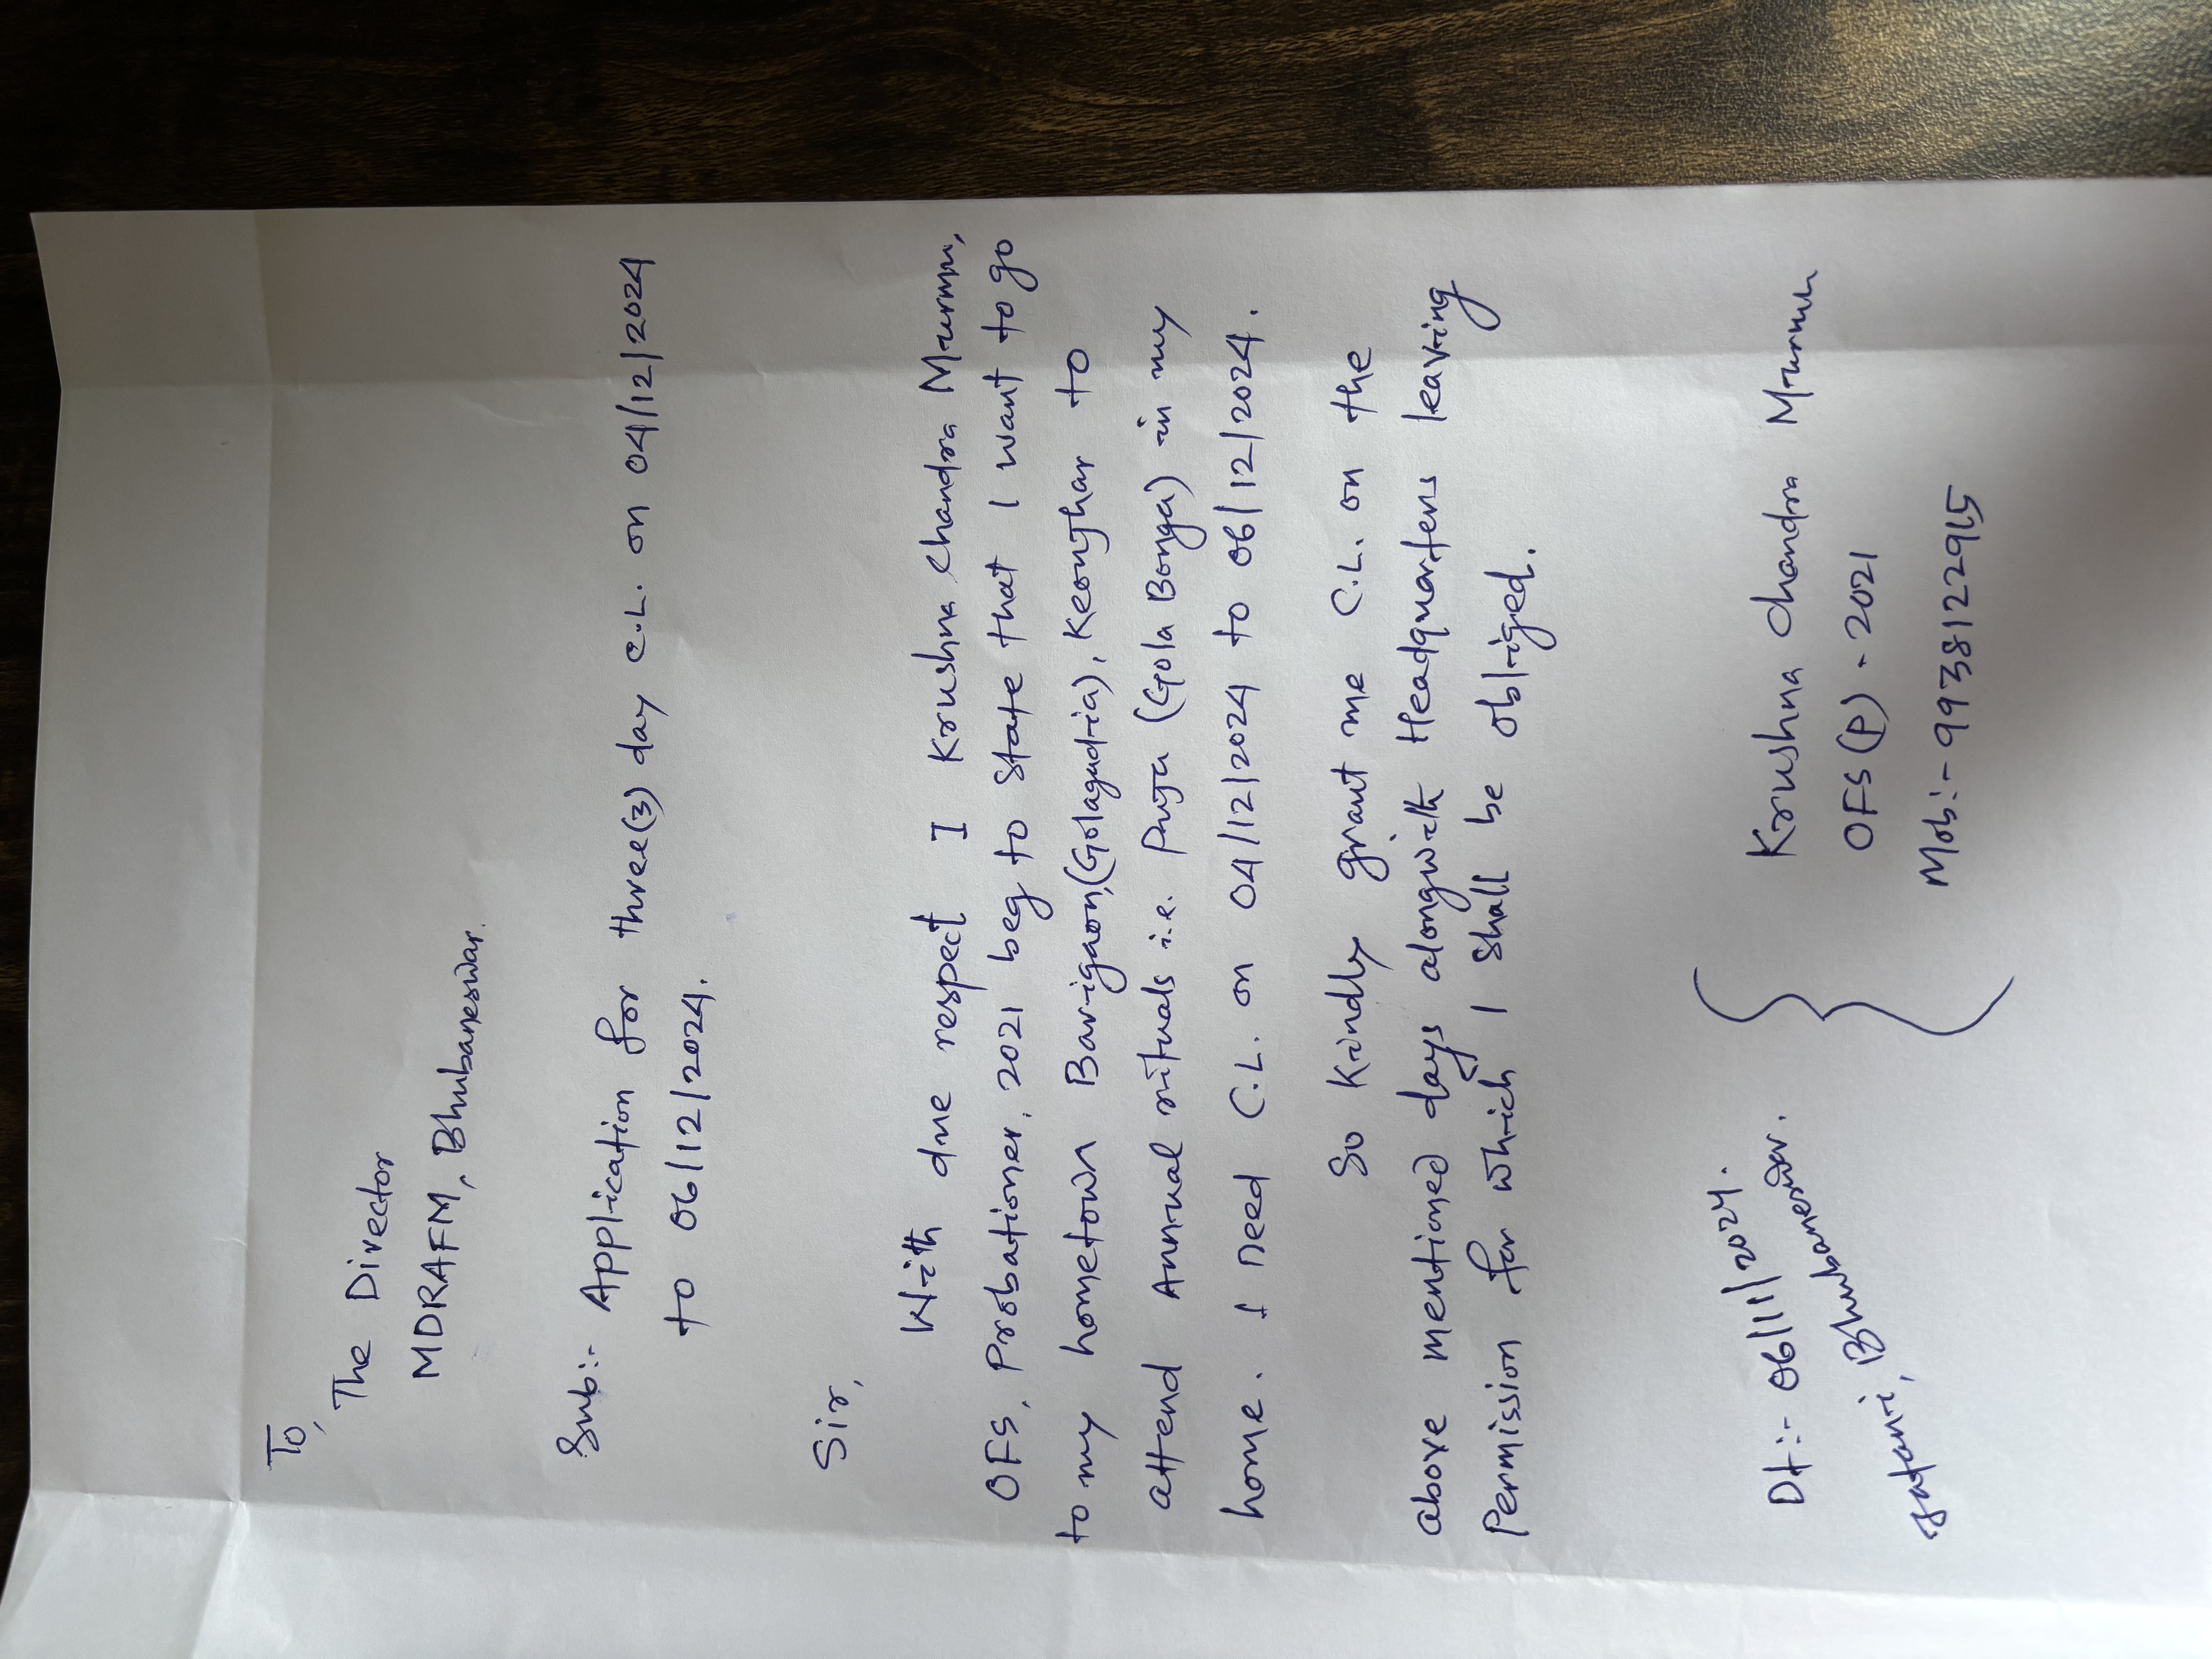 To,
The Director
MDRAFM, Bhubaneswar.
Sub:- Application for three(3) day C.L. on 04/12/2024
to 06/12/2024.
Sir,
With due respect I Krushna Chandra Murmu,
OFS, Probationer, 2021 beg to state that I want to go
to my hometown Barigaon,(Golagadia), Keonjhar to
attend Annual rituals i.e. Puja (Gola Bonga) in my
home. I need C.L. on 04/12/2024 to 06/12/2024.
So Kindly grant me C.L. on the
above mentioned days alongwith Headquarters leaving
Permission for which I shall be obliged.
Dt:- 06/11/2024.
Jatani, Bhubaneswar.
Krushna Chandra Murmu
OFS(P) - 2021
Mob:- 9938122915